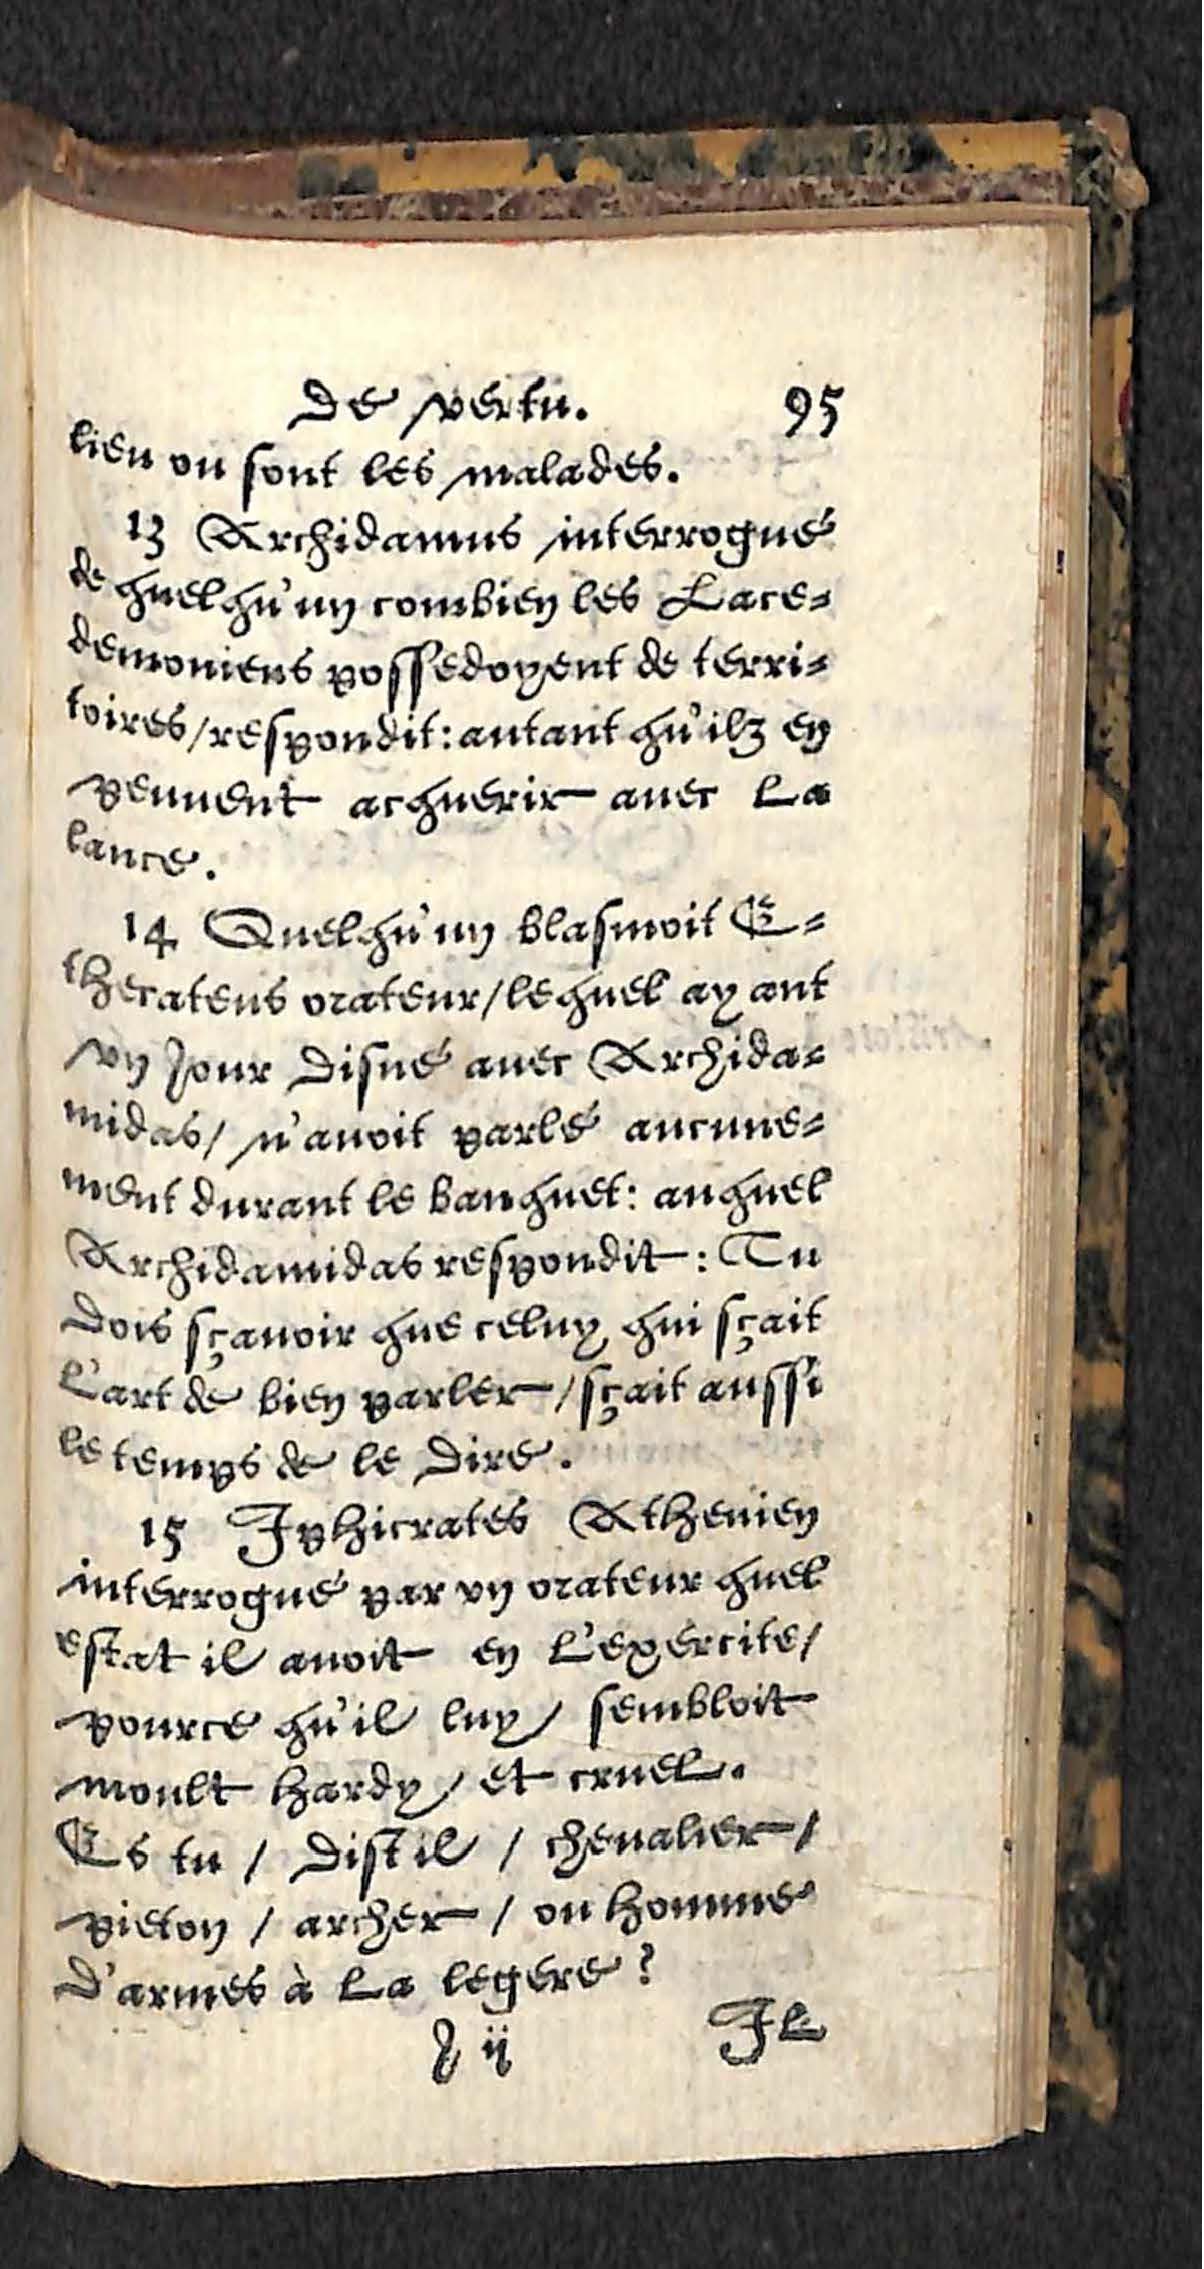 De vertu. 95
lieu ou sont les malades.
13 Archidamus interrogué
de quelqu'un combien les Lace-
demoniens possedoyent de terri-
toires/respondit: autant qu'ilz en
peuuent acquerir auec la
lance.
14 Quelqu'un blasmoit E-
thecateus orateur/lequel ayant
vn jour disné auec Archida-
midas/ n'auoit parlé aucune-
ment durant le banquet: auquel
Archidamidas respondit: Tu
dois sçauoir que celuy qui sçait
l'art de bien parler/sçait aussi
le temps de le dire.
15 Iphicrates Athenien
interrogué par vn orateur quel
estat il auoit en l'exercite/
pource qu'il luy sembloit
moult hardy/et cruel.
Es tu / dist il / cheualier/
pieton / archer / ou homme
d'armes à la legere?
J ij Il